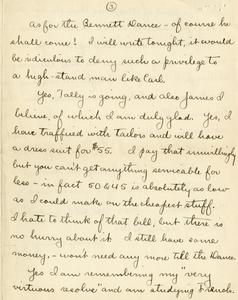 3
As for the Bennett Dance - of course he
shall come! I will write tonight, it would
be ridiculous to deny such a privelege to
a high-stand man like Carl.
Yes, Tally is going, and also James I
believe, of which I am duly glad. Yes, I
have traffied with tailors and will have
a dress suit for $55. I pay that unwillingly
but you can't get anything servicable for
less - in fact 50 & 45 is absolutely as low
as I could make on the cheapest stuff.
I hate to think of that bill, but there is
no hurry about it. I still have some
money, - wont need any more till the Dance.
Yes I am remembering my "very
virtuous resolve" and am studying French.